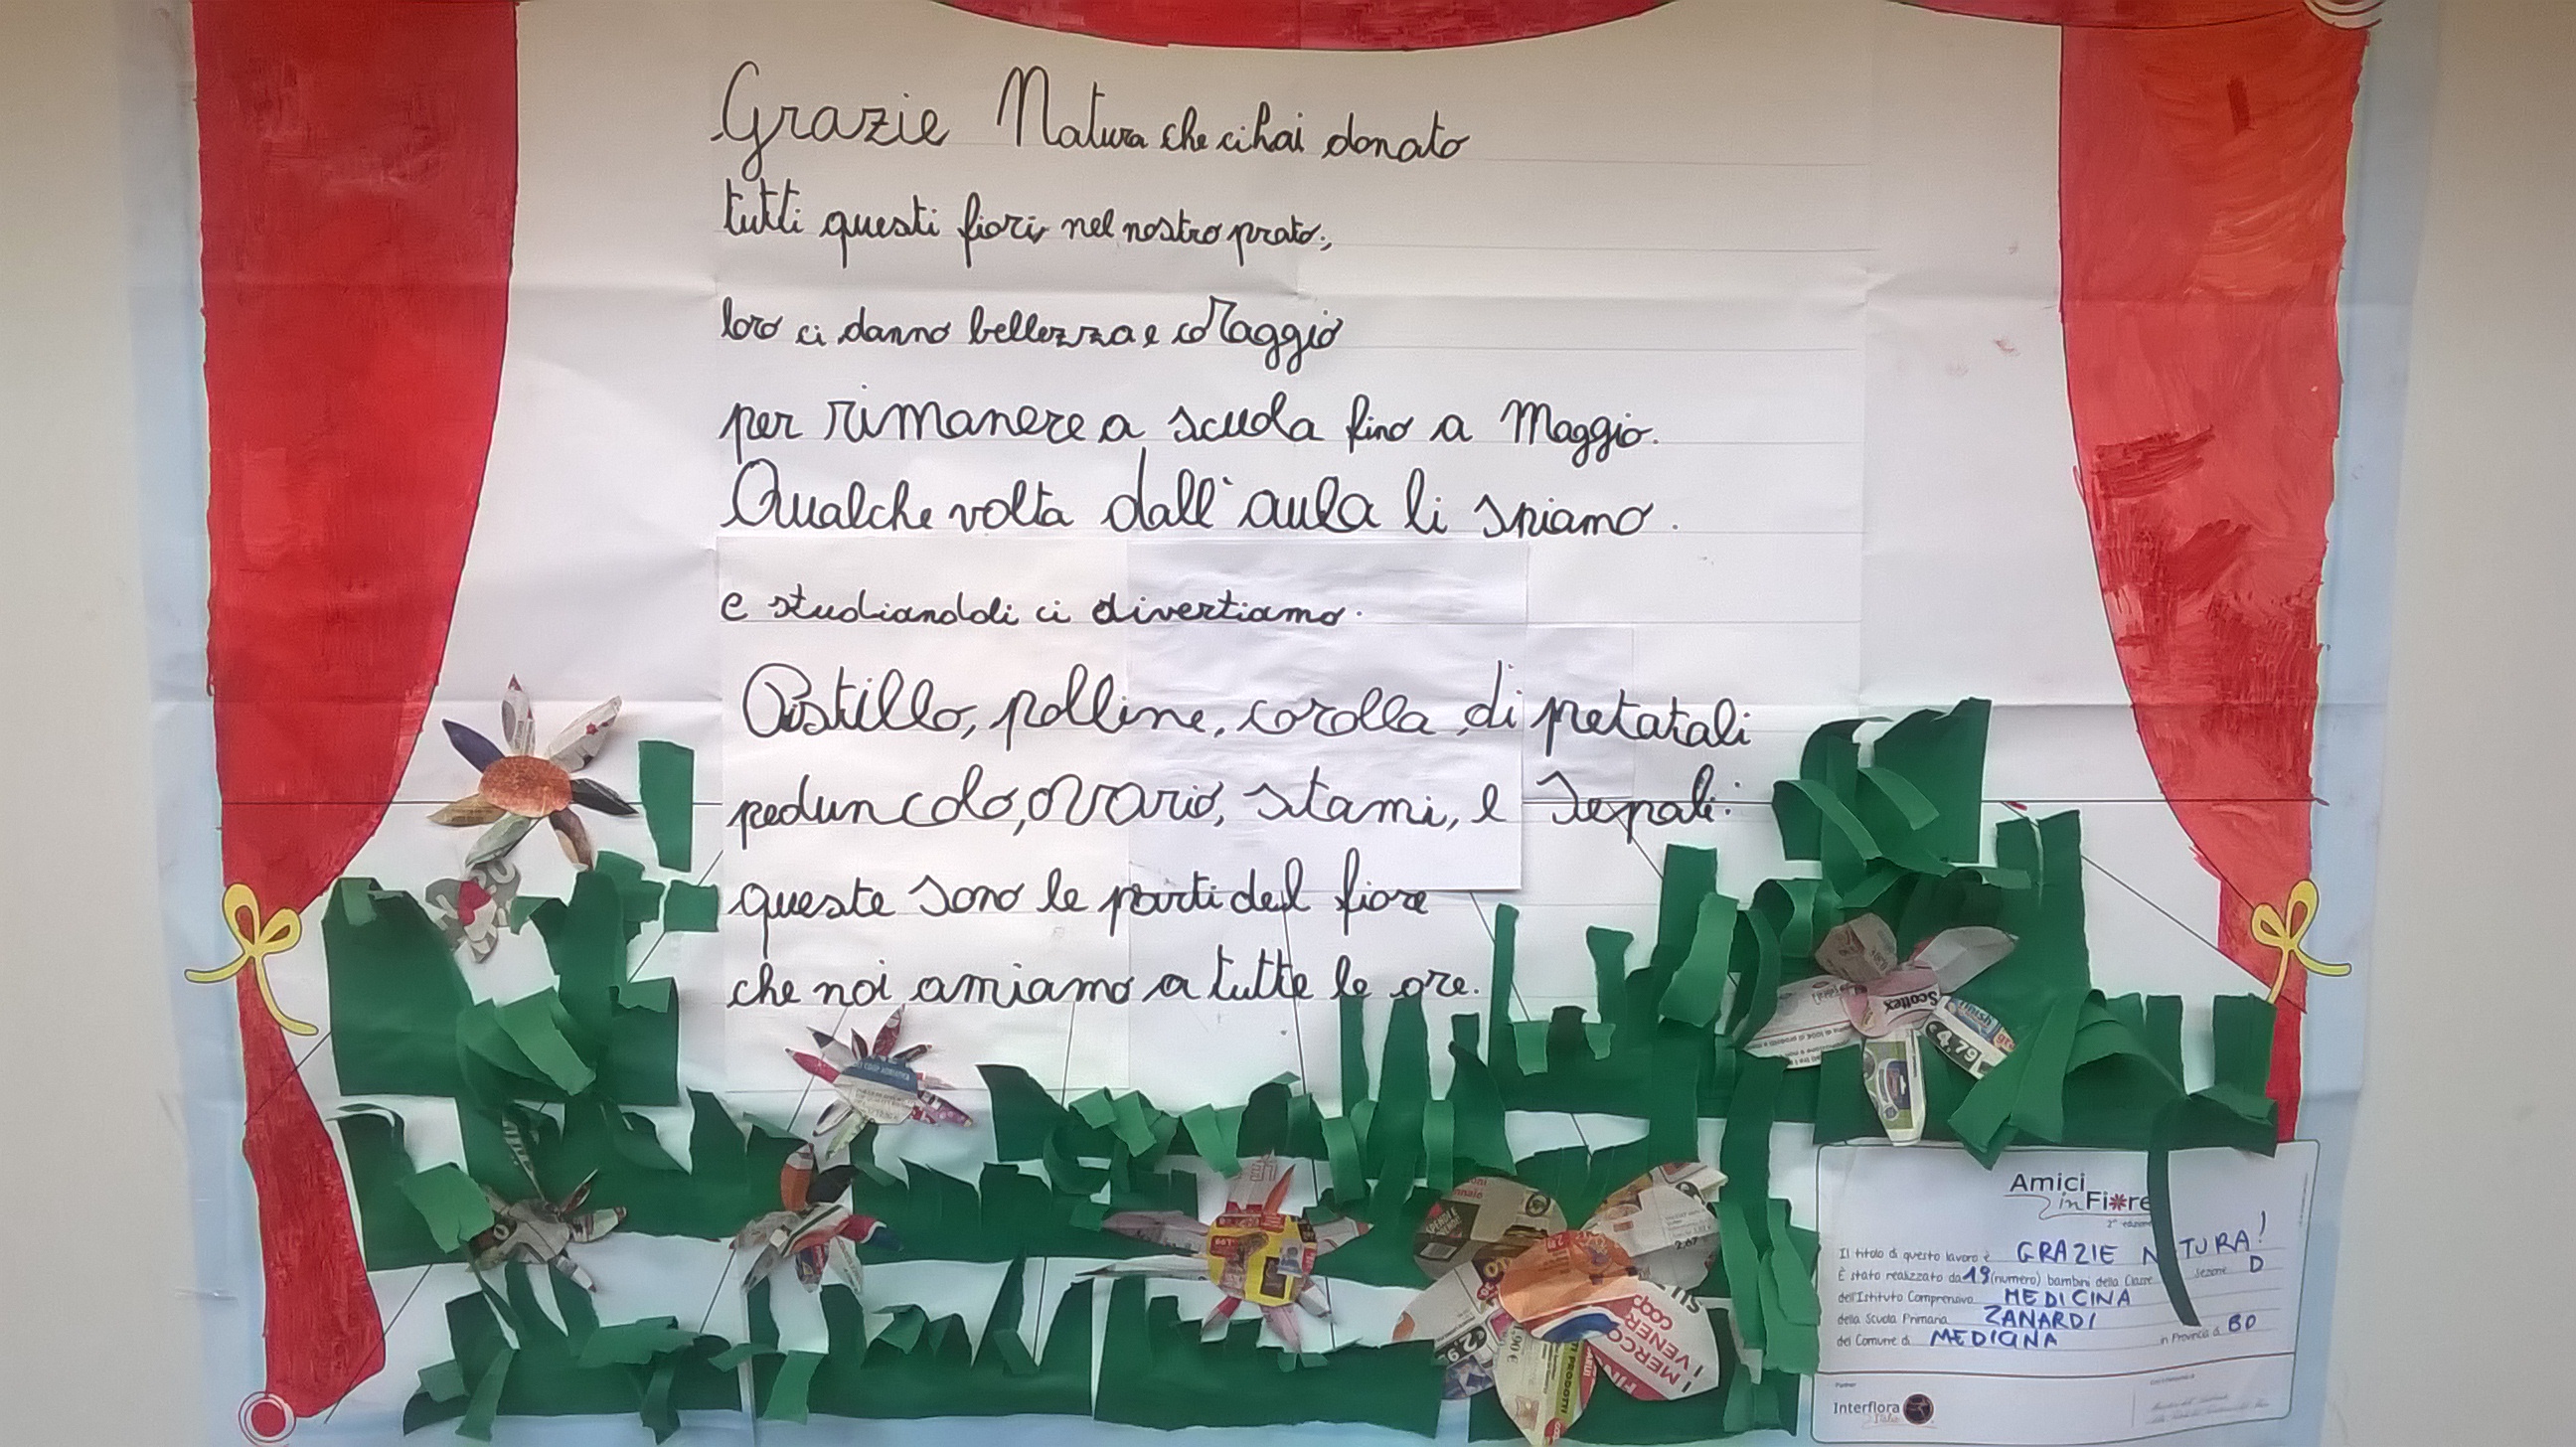 Grazie Natura che ci hai donato
tutti questi fiori, nel nostro prato;
loro ci danno bellezza e coraggio
per rimanere a scuola fino a Maggio.
Qualche volta dall'aula li spiamo.
e studiandoli ci divertiamo.
Pistillo, polline, corolla di petatali
peduncolo, ovario, stami, e sepali:
queste sono le parti del fiore
che noi amiamo a tutte le ore.
Scottex
finish
€4,79
Amici
in Fiore
Il titolo di questo lavoro è GRAZIE N TURA!
È stato realizzato da 19 (numero) bambini della Classe sezione D
dell'Istituto Comprensivo MEDICINA
della Scuola Primaria ZANARDI
del Comune di MEDICINA in Provincia di BO
I MERCO
I VENER
COOP
SU
Partner
Interflora
Italia